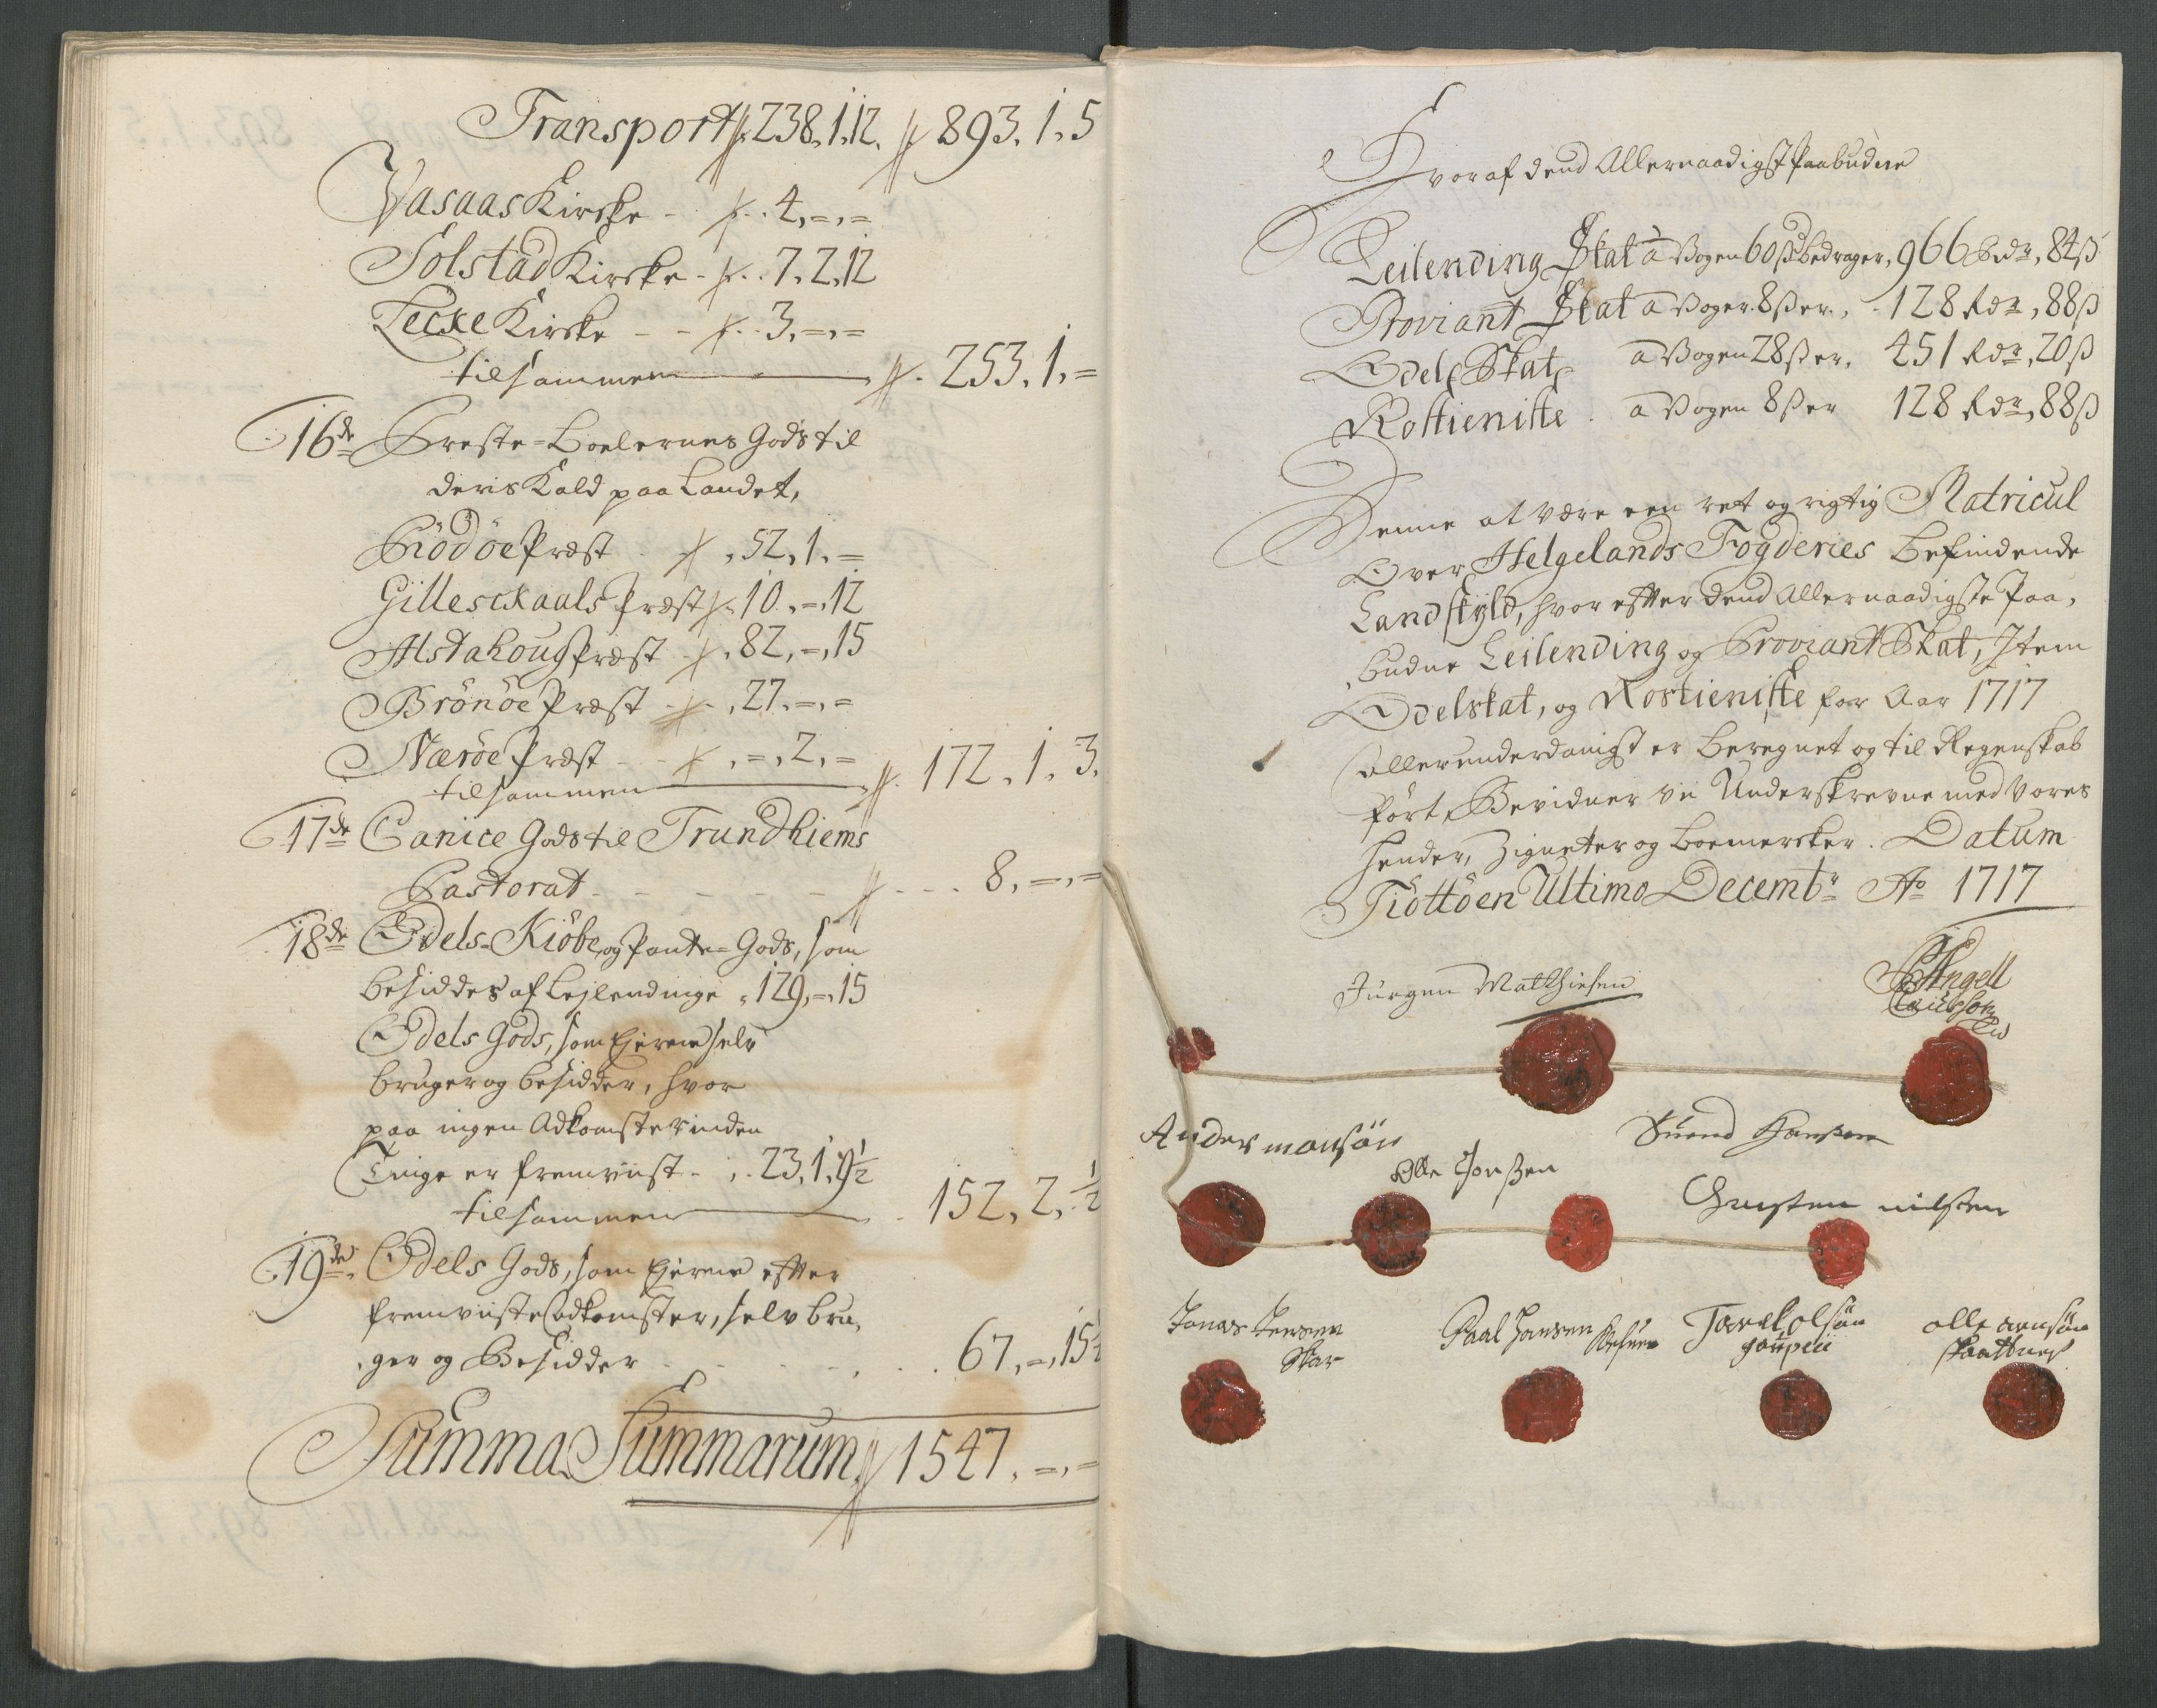 Transport 238,1,12. 893,1,5
Vasaas Kirke - 4,=,=
Solstad Kirke - 7,2,12
Lecke Kirke - - 3,=,=
tilsammen 253,1,=
16de Preste-Boelernes Gods til
deris Kald paa Landet,
Rödöe Præst - 52,1,=
Gillesckaals Præst 10,=,12
Alstahoug Præst 82,=,15
Brönöe Præst - 27,=,=
Næröe Præst - - =,2,=
tilsammen 172,1,3,
17de Canice Gods til Trundhiems
Pastorat - - - - - 8,=,=
18de Odels-Kiöbe og Pante-Gods, som
besiddes af Lejlendinge, 129,=,15
Odels Gods, som Ejerne selv
bruger og besidder, hvor
paa ingen Adkomster inden
Tinge er fremviist - 23,1,9½
tilsammen 152,2,½
19de Odels Gods, som Ejerne efter
fremviiste adkomster, selv bru,
,ger og Besidder - - - 67,=,15½
Summa Summarum 1547,=,=
Hvoraf dend Allernaadigst Paabudne
Leilending Skat a Vogen 60ß bedrager, 966 Rdr, 84ß
Proviant Skat a Voger 8ß er, 128 Rdr, 88ß
Odels Skat a Vogen 28ß er, 451 Rdr, 20ß
Rostieniste a Vogen 8ß er 128 Rdr, 88ß
Denne at være een ret og rigtig Matricul
Over Helgelands Fogderies Befindende
Landskyld, hvor efter dend Allernaadigste Paa,
,budne Leilending og Proviant Skat, Item
Odelskat, og Rostieniste for Aar 1717
Allerunderdanigst er beregnet og til Regenskab
fört, Bevidner vii Underskrevne med vores
hender, Zigneter og boemercker. Datum
Tiöttöen Ultimo Decembr Ao 1717
Jurgen Matthiesen Angell
Anders monsön Suend Hanßen
Olle Jonßen
Christen nilsen
Jonas Jensen Paal Hansen Tarel olsön olle arnsön
Skar